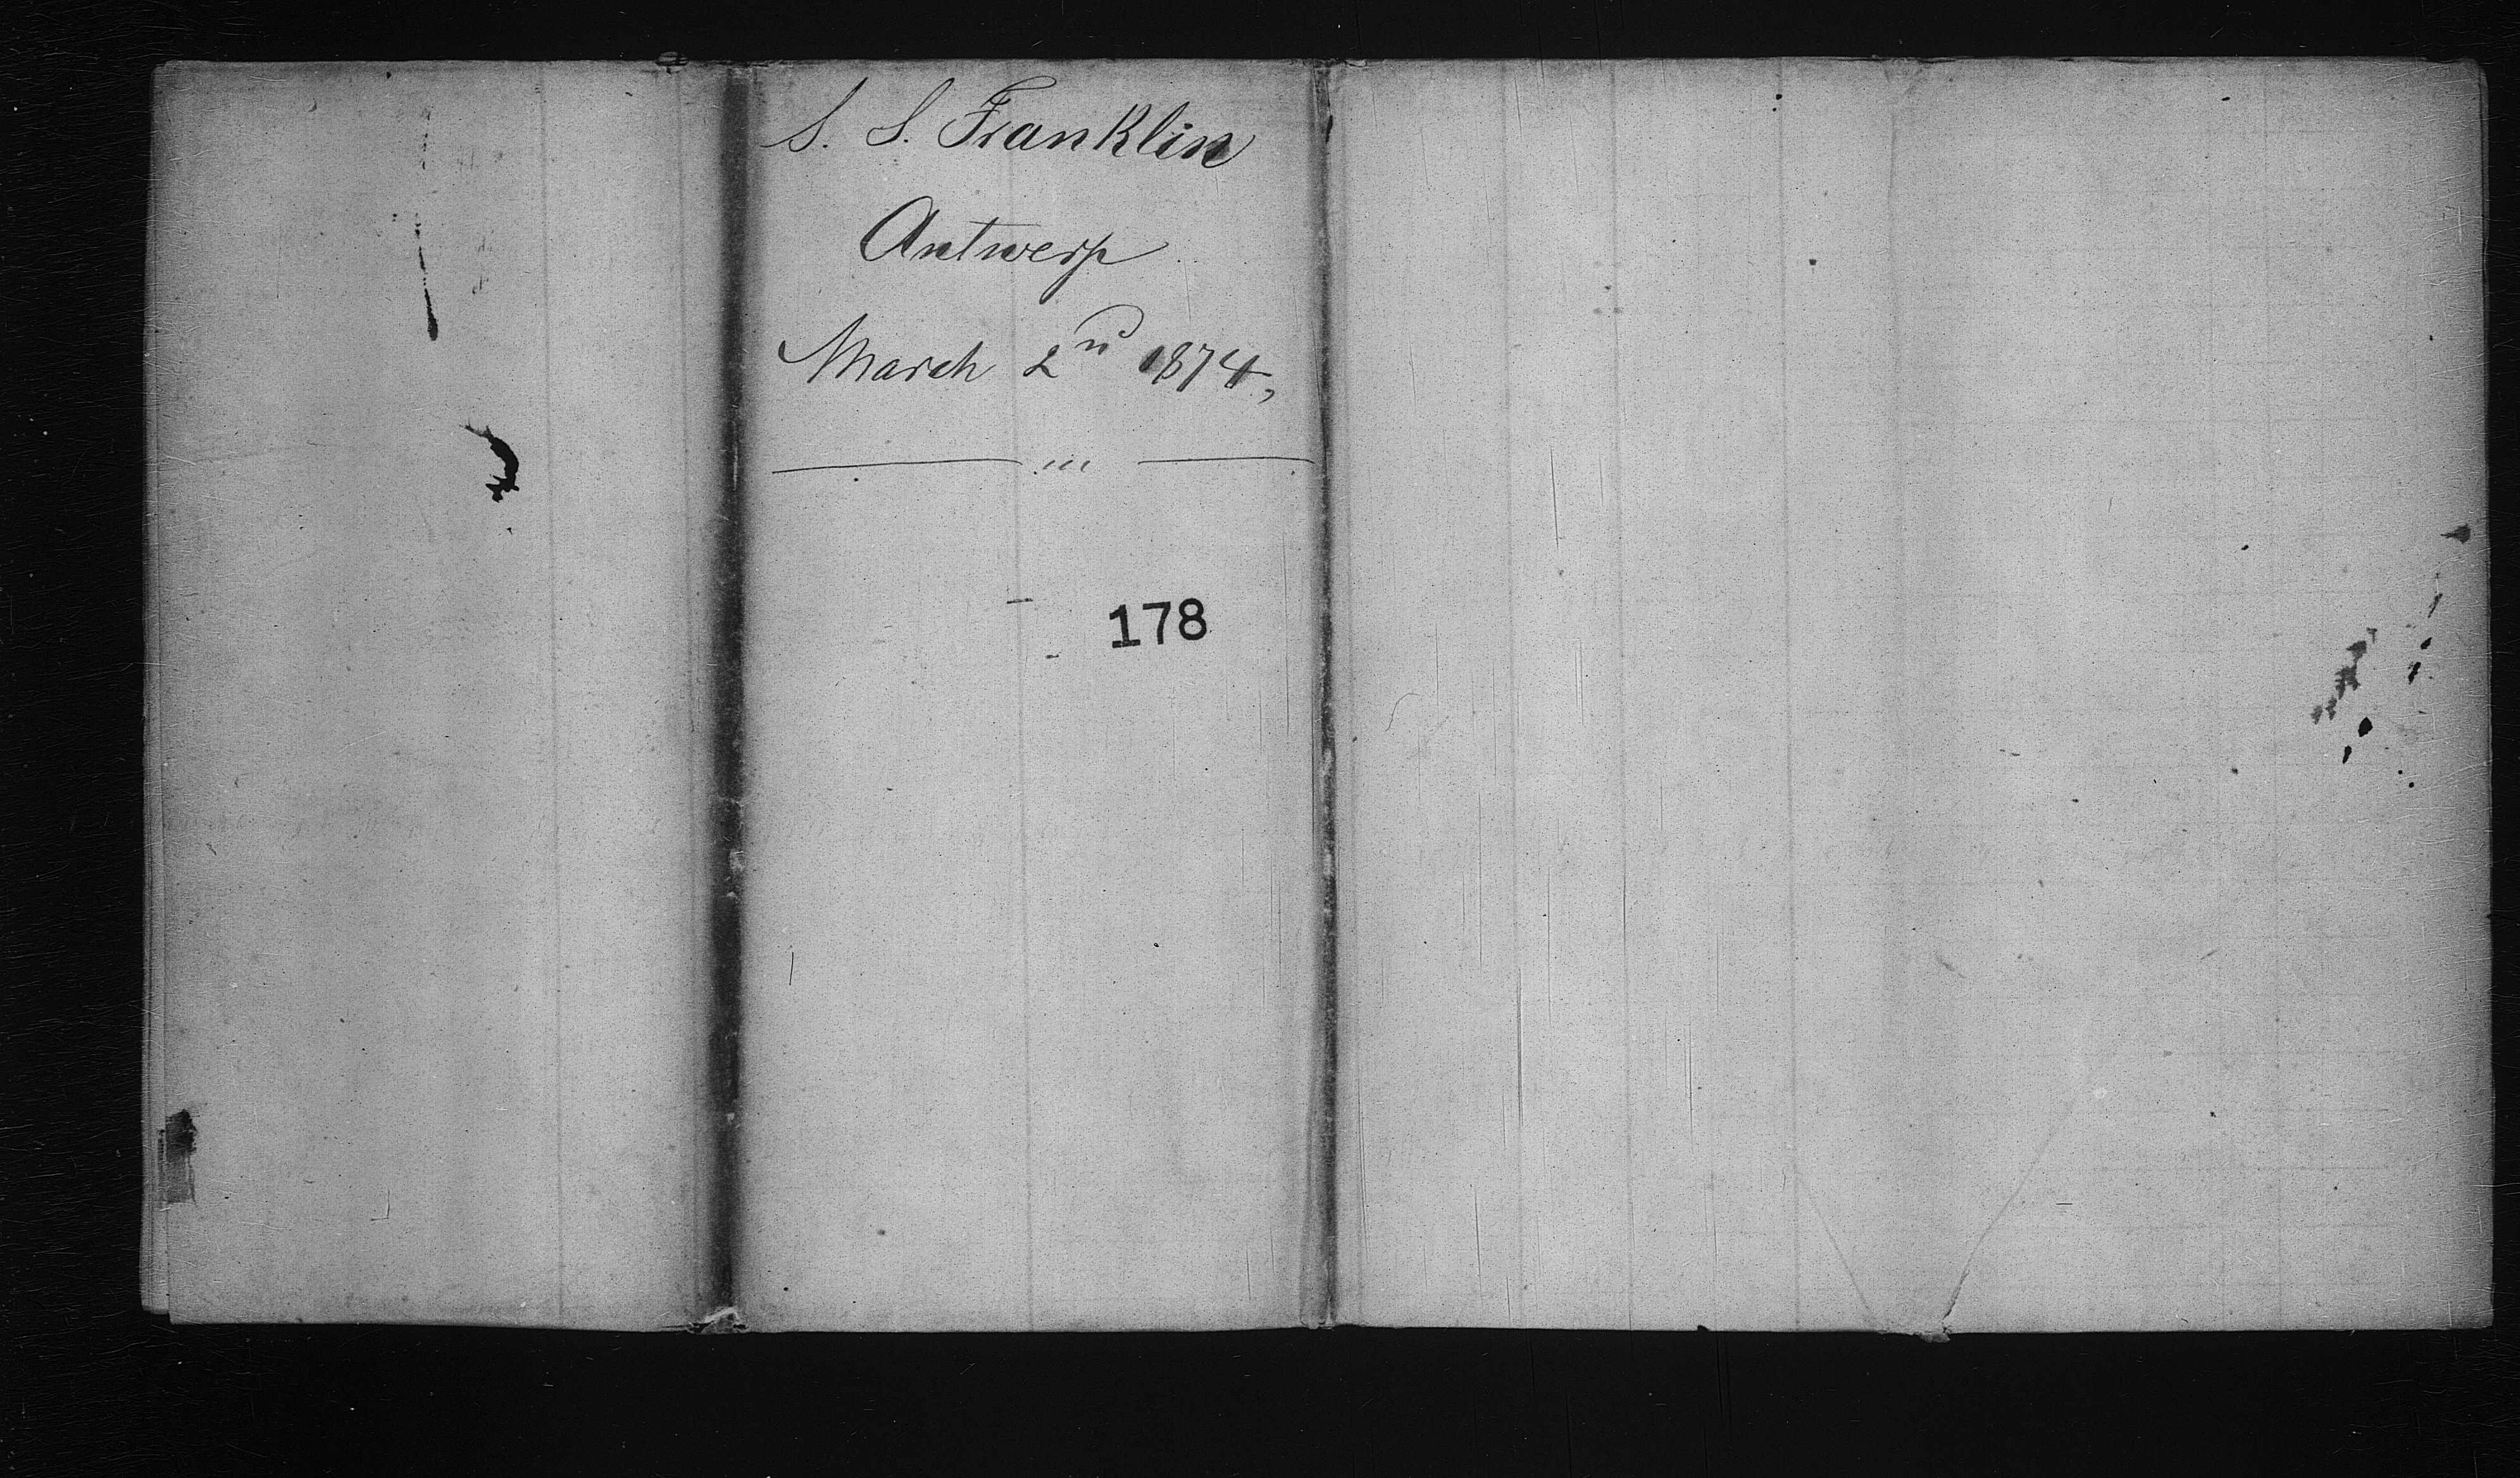 S. S. Franklin
Antwerp
March 2nd 1874,
178